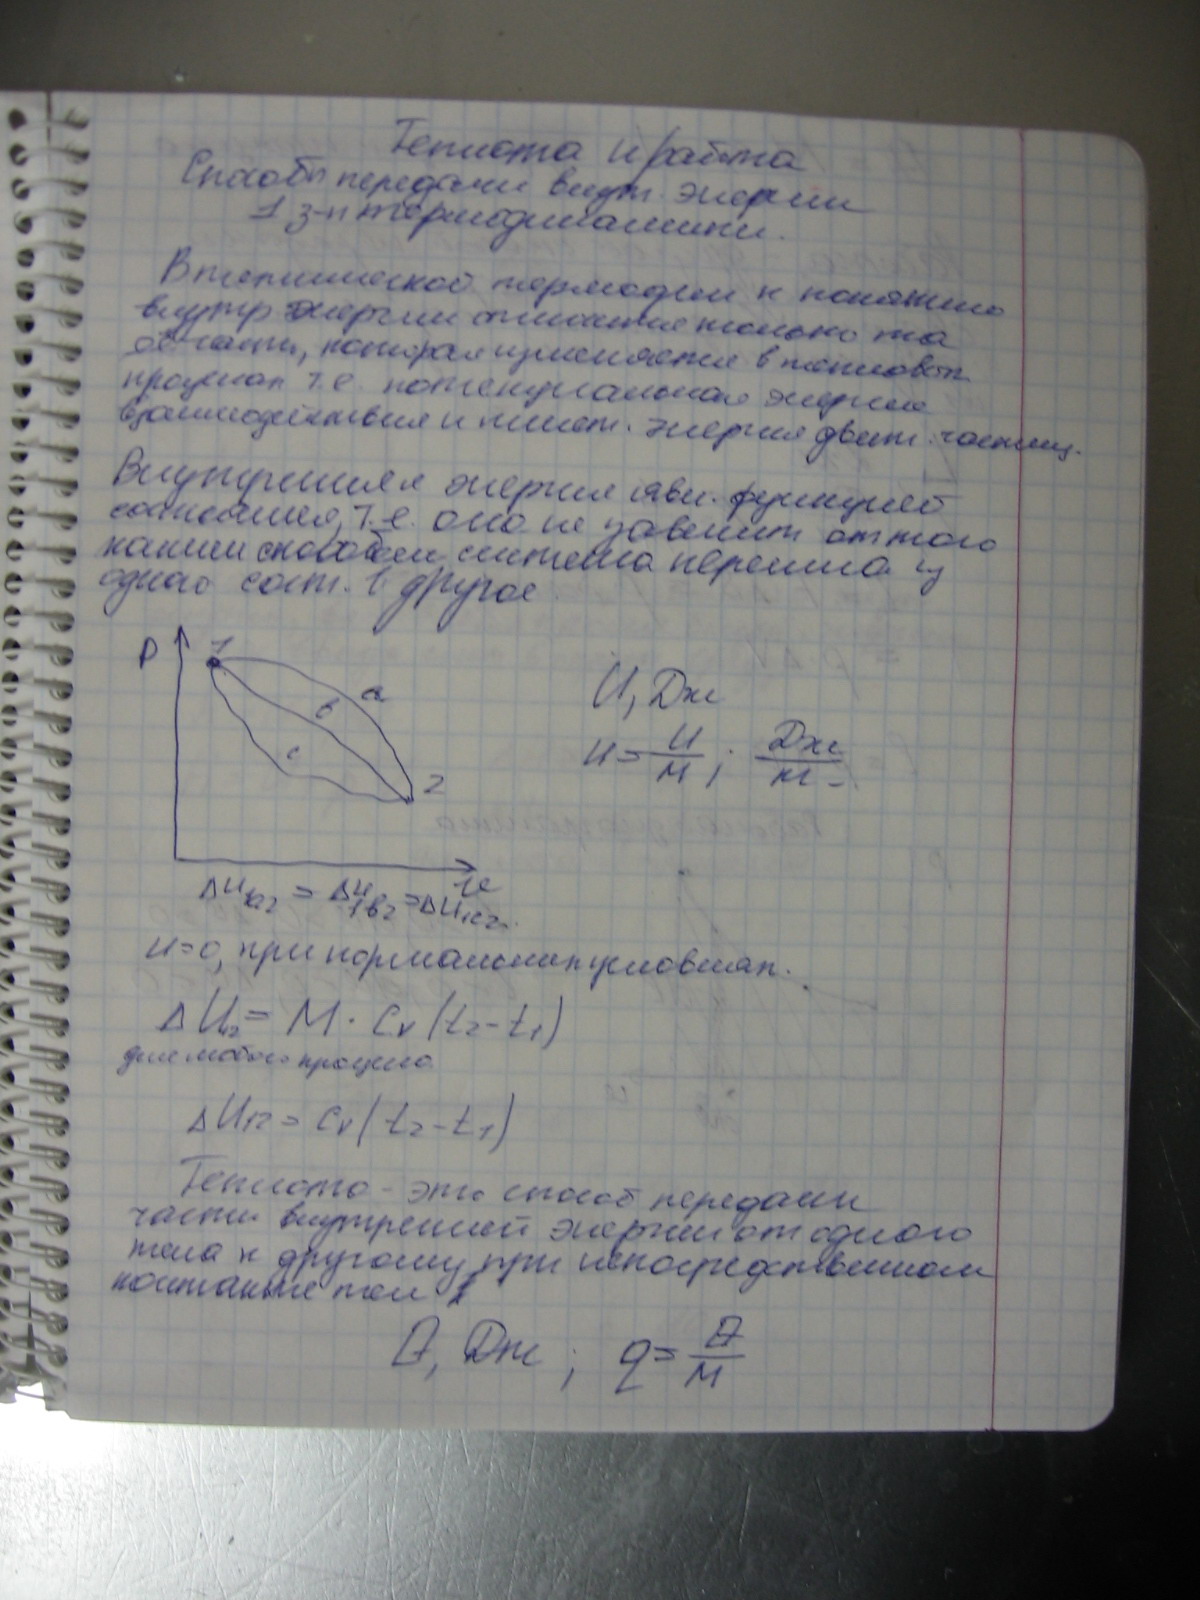 Теплота и работа
Способы передачи внут. энергии
1 з-н термодинамики.
В технической термодин к понятию
внутр энергии относится только та
её часть, которая изменяется в тепловых
процессах т.е. потенциальная энергия
взаимодействия и кинет. энергия движ. частиц.
Внутренняя энергия явл. функцией
состояния, т.е. она не зависит от того
каким способом система перешла из
одного сост. в другое.
P
1
a
в
c
2
U, Дж
u = U/M ; Дж/кг
ΔU1a2 = ΔU1в2 = ΔU1c2
u=0, при нормальных условиях.
ΔU12 = M · Cv (t2 - t1)
для любого процесса
ΔU12 = Cv (t2 - t1)
Теплота - это способ передачи
части внутренней энергии от одного
тела к другому при непосредственном
контакте тел
Q, Дж ; q = Q/M